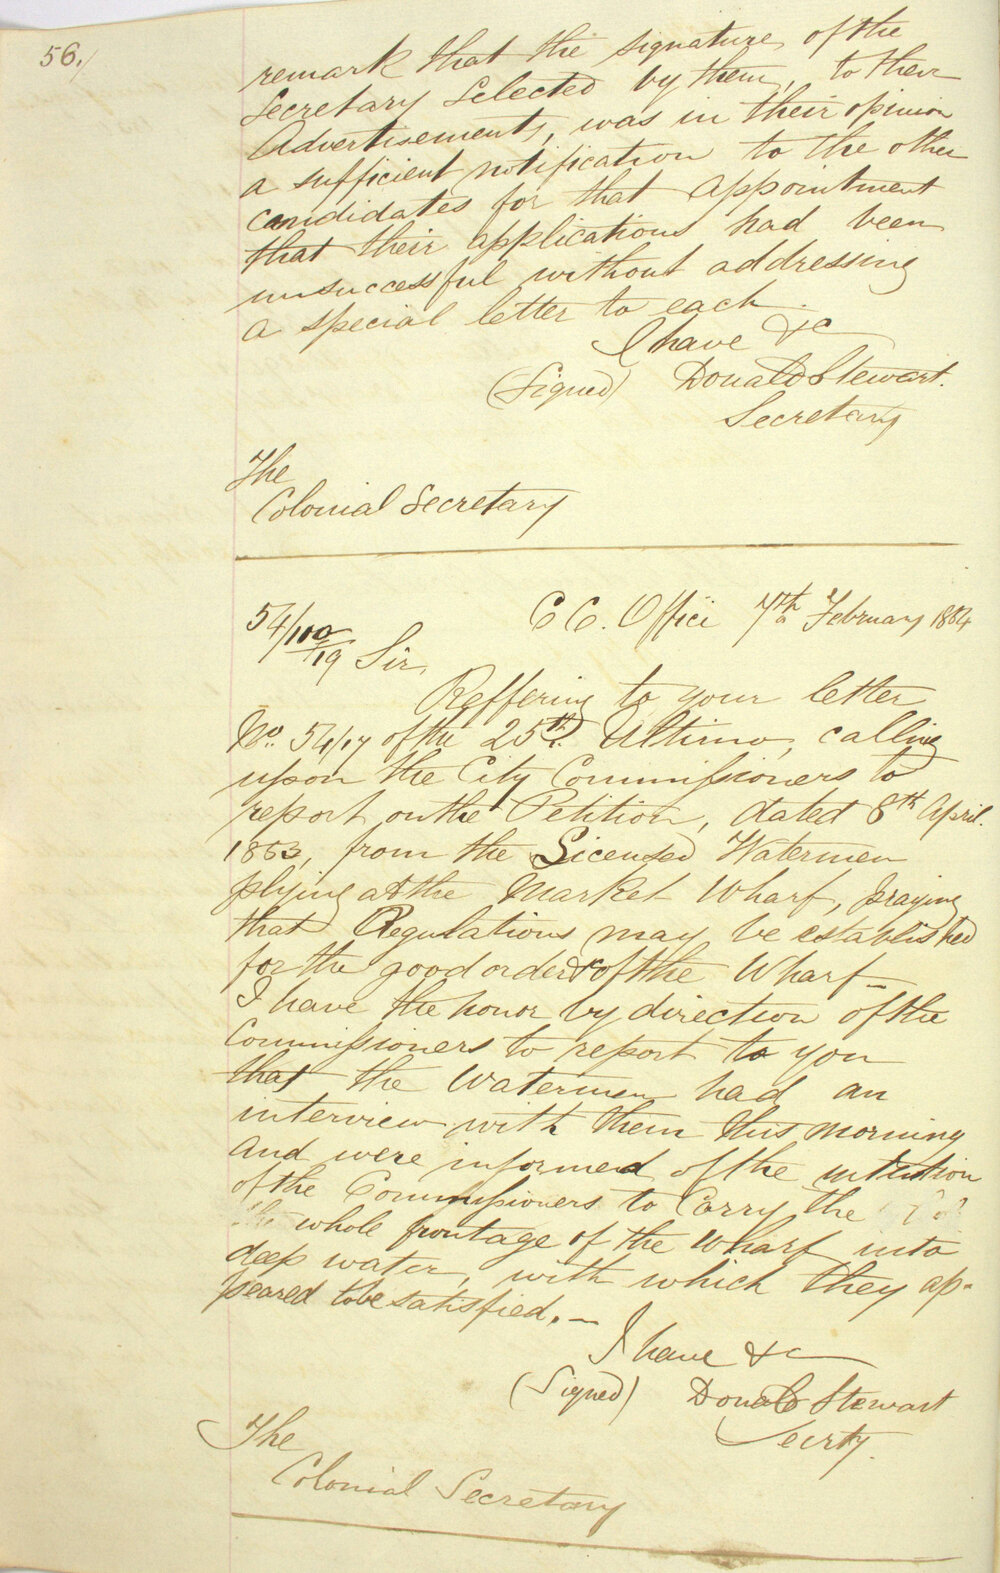 56.
remark that the signature, of the
Secretary Selected by them, to their
Advertisements, was in their opinion
a sufficient notification to the other
candidates for that appointment
that their applications had been
unsuccessful without addressing
a special letter to each.
I have &c
(Signed) Donald Stewart.
Secretary
The
Colonial Secretary
54/100/19 C C. Office 7th February 1854
Sir,
Reffering to your letter
No. 54/17 of the 25th. Ultimo, calling
upon the City Commissioners to
report on the Petition, dated 8th April.
1853, from the Licensed Watermen
plying at the Market Wharf, praying
that Regulations may be established
for the good order of the Wharf—
I have the honor by direction of the
Commissioners to report to you
that the Watermen had an
interview with them this morning
and were informed of the intention
of the Commissioners to Carry the
the whole frontage of the Wharf into
deep water, with which they ap-
peared to be satisfied.—
I have &c
(Signed) Donald Stewart
Secrty.
The
Colonial Secretary